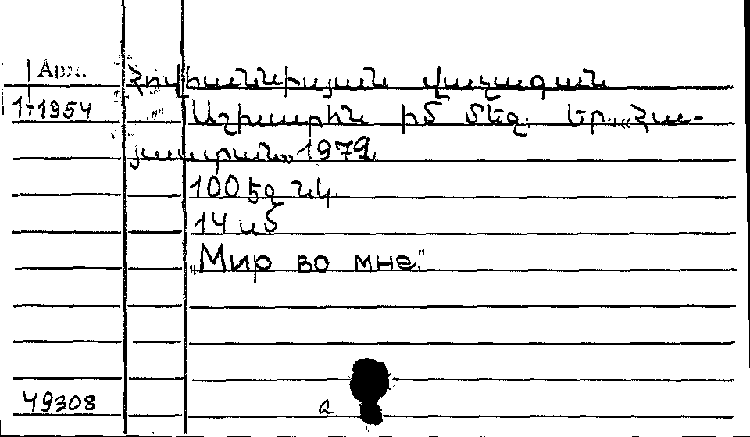 Арм. Հովհաննիսյան Վաչագան
1-1954 Աշխարհն իմ մեջ. Եր., «Հա-
յաստան», 1979.
100 էջ նկ.
14 սմ
„Мир во мне"
49308